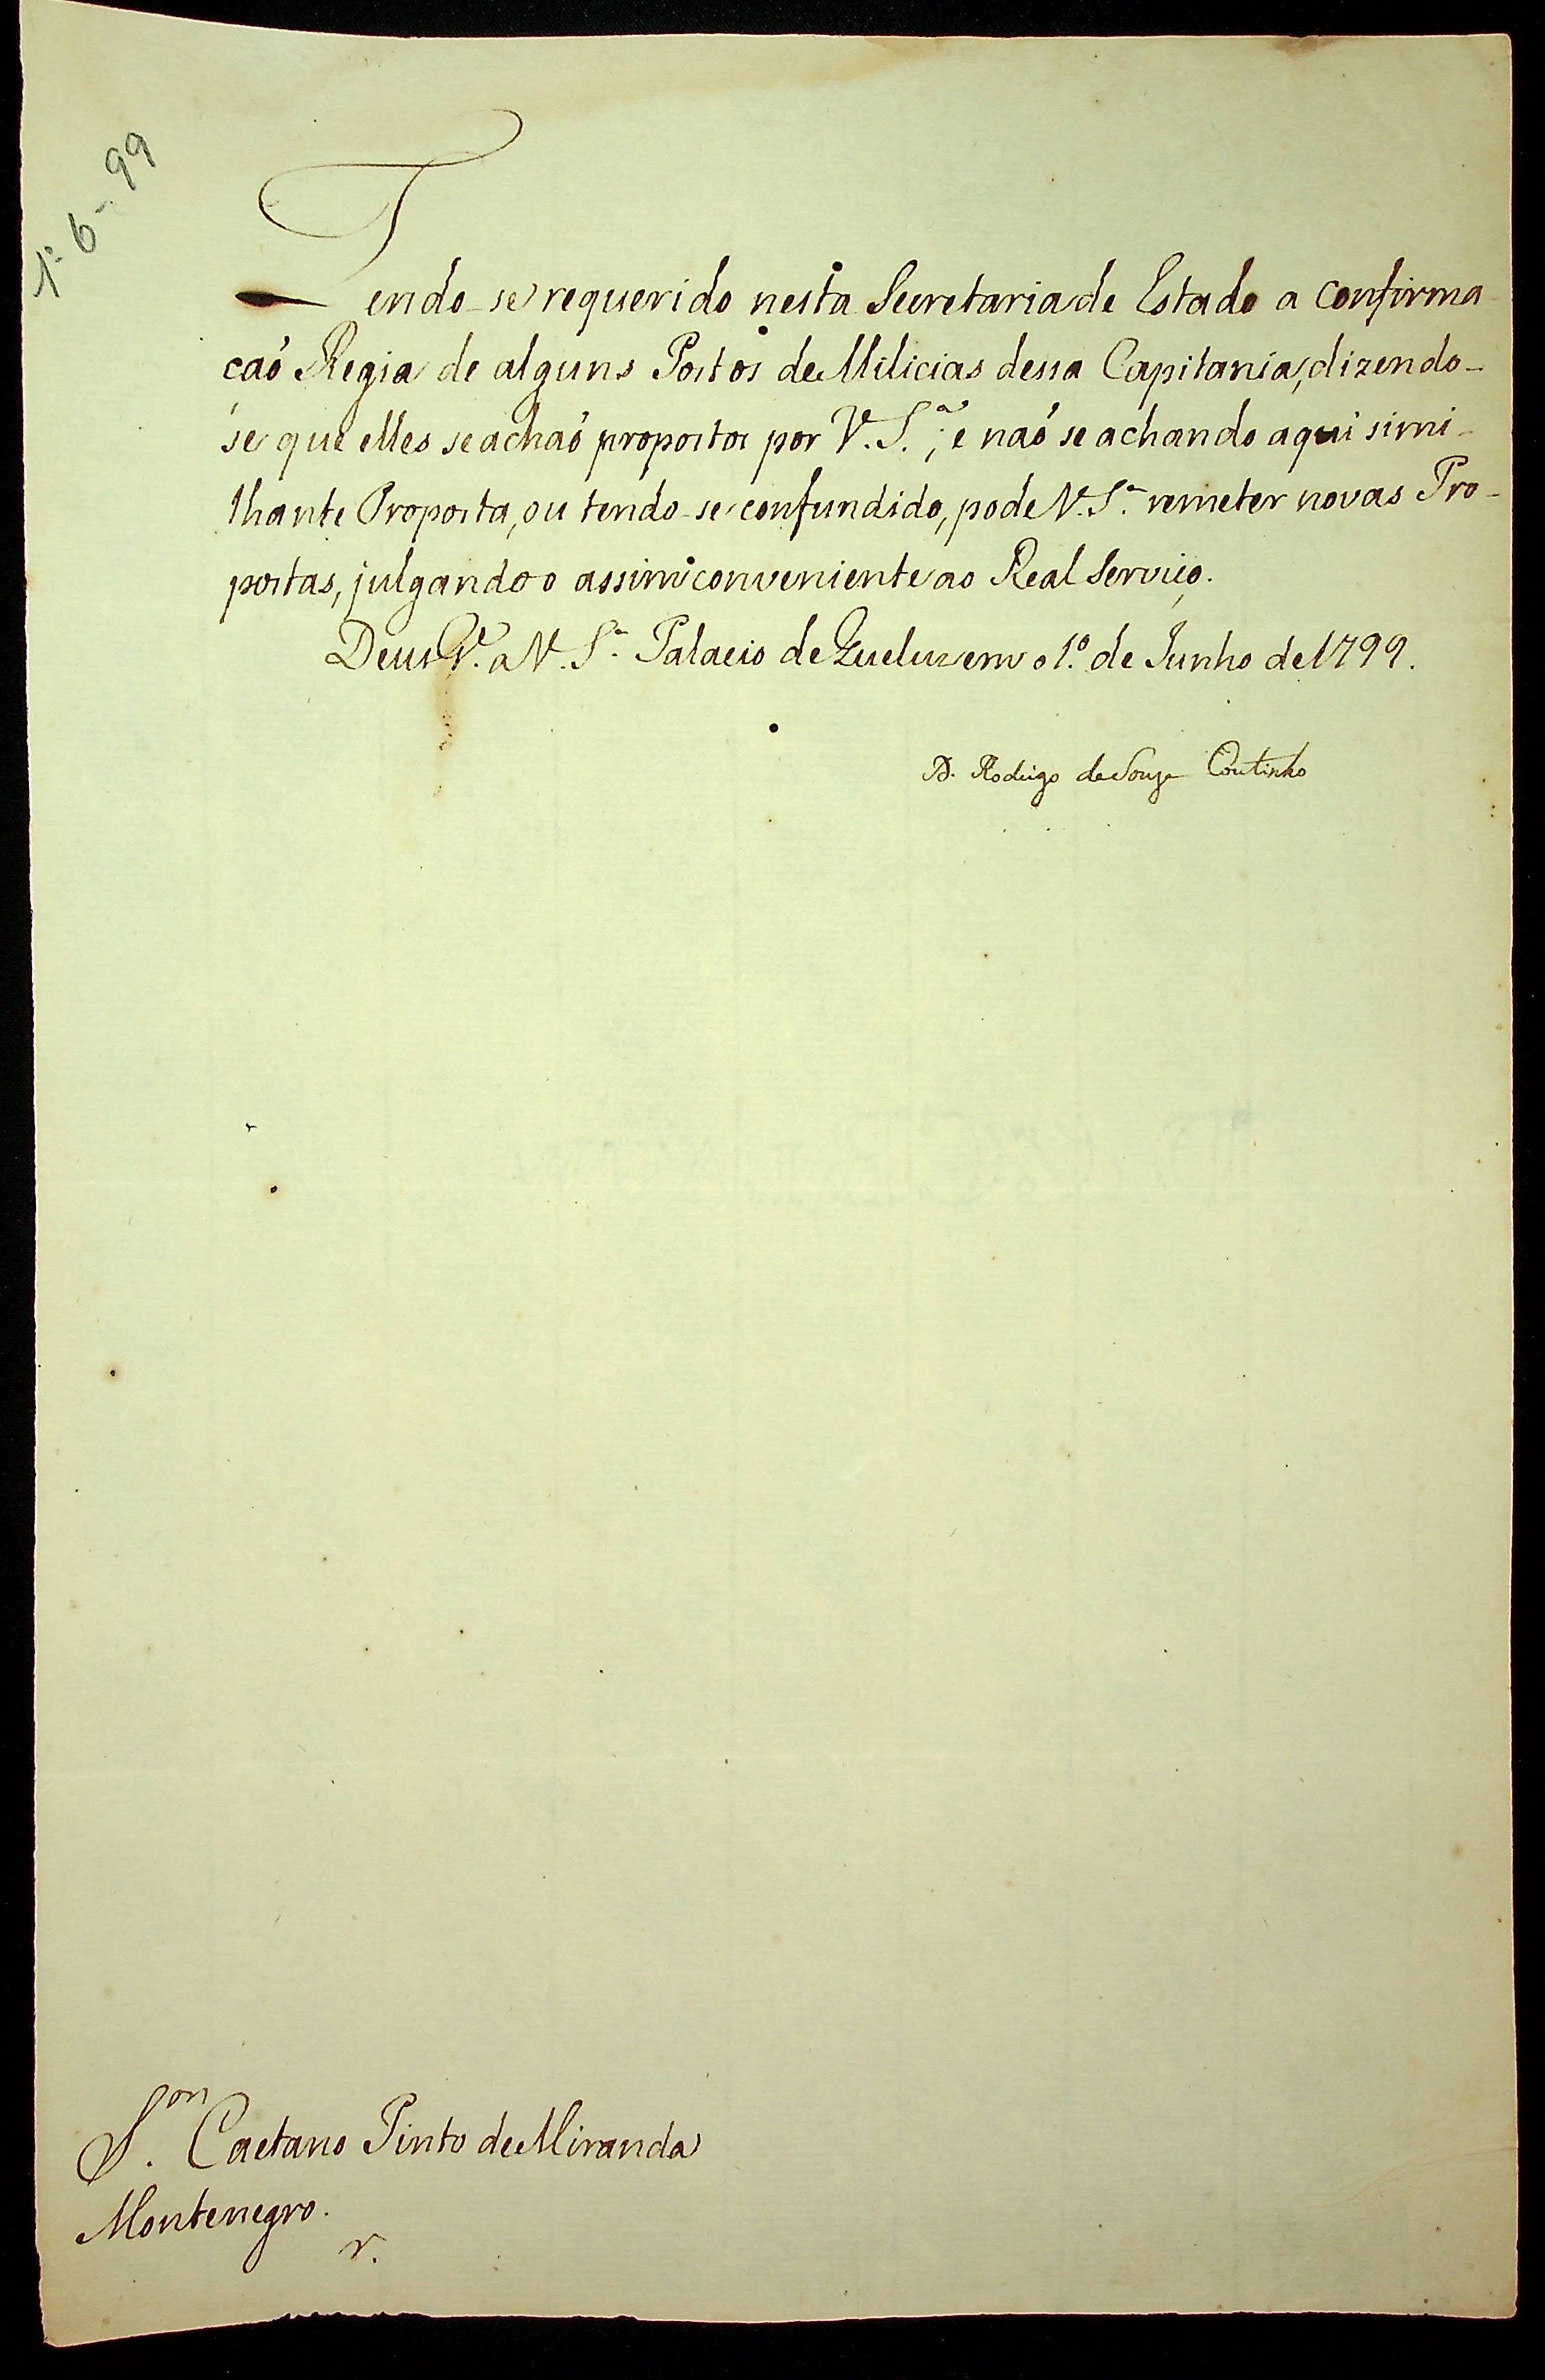 1º-6-99
Tendo-se requerido nesta Secretaria de Estado a confirma
caõ Regia de alguns Postos de Milicias dessa Capitania, dizendo-
se que elles se achaõ propostos por V. S.ª; e naõ se achando aqui simi-
lhante Proposta, ou tendo-se confundido, pode V. S.ª remeter novas Pro-
postas, julgando o assim conveniente ao Real Serviço.
Deus G.e a V. S.ª Palacio de Queluz em o 1.º de Junho de 1799.
D. Rodrigo de Souza Coutinho
S.or Caetano Pinto de Miranda
Montenegro.